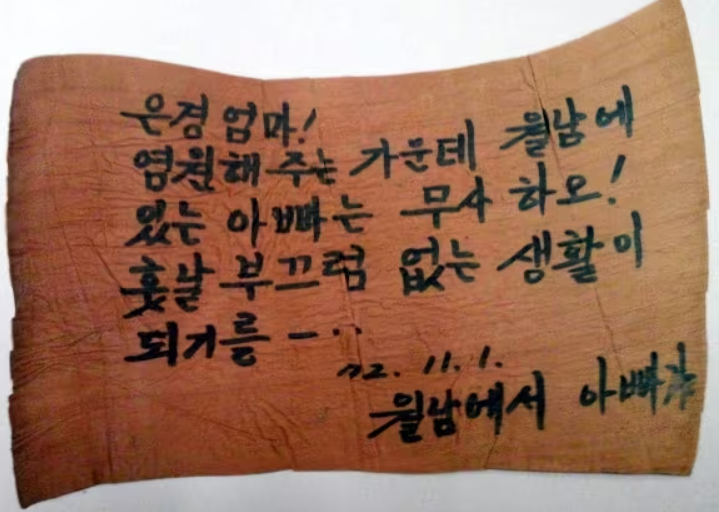 은경 엄마!
염원해 주는 가운데 월남에
있는 아빠는 무사 하오!
훗날 부끄럼 없는 생활이
되기를 - ··
72. 11. 1.
월남에서 아빠가